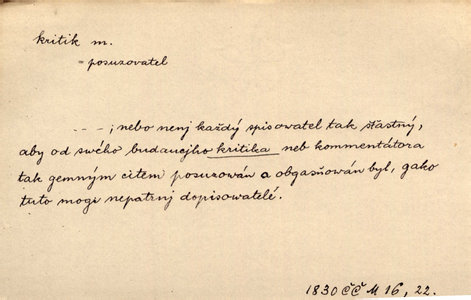 kritik m.
= posuzovatel
- - - ; nebo nenj každý spisowatel tak sťastný,
aby od swého budaucjho kritika neb kommentátora
tak gemným citem posuzowán a obgasňowán byl, gako
tuto mogi nepatrnj dopisowatelé.
1830 ČČM 16, 22.